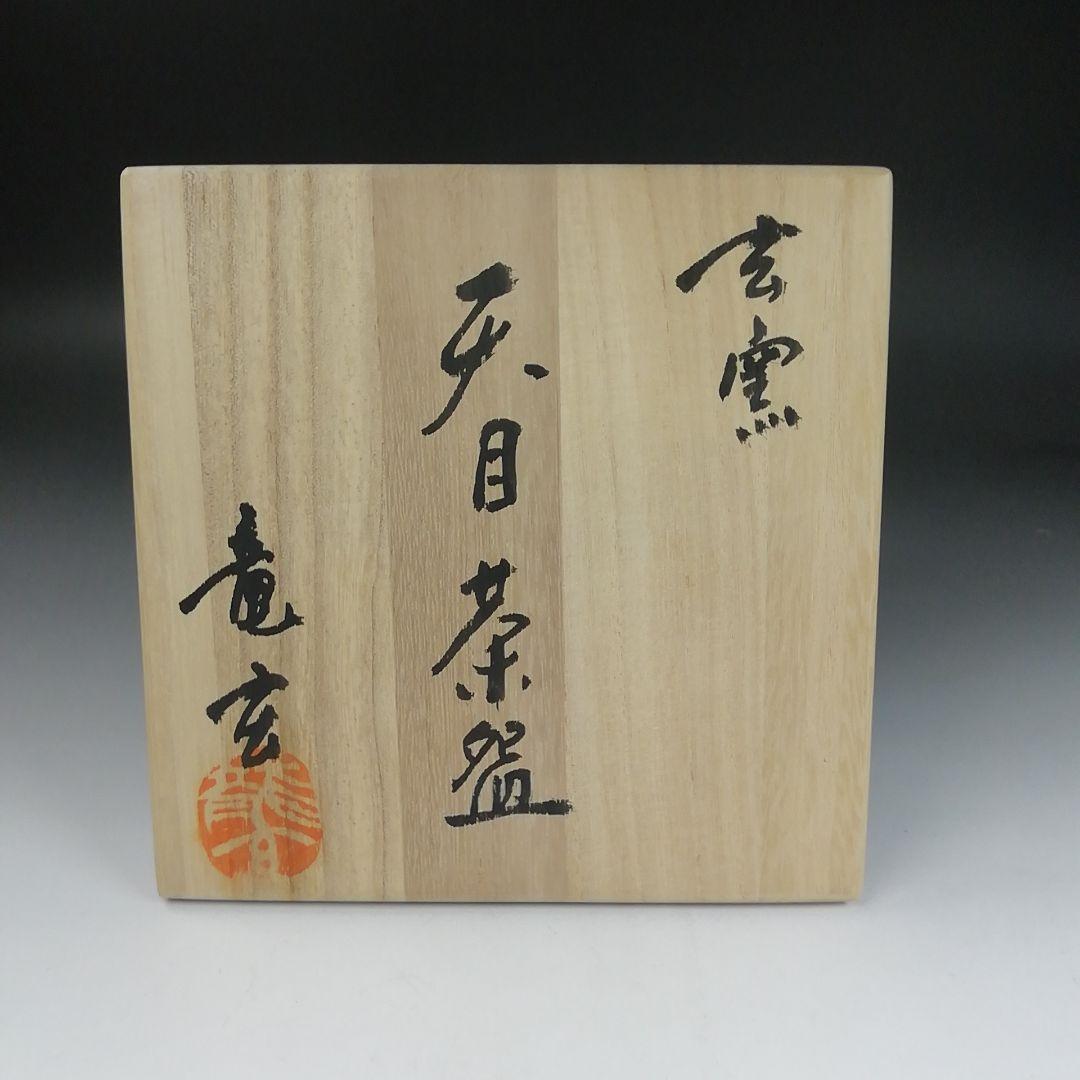 玄窯
天目茶盌
竜玄